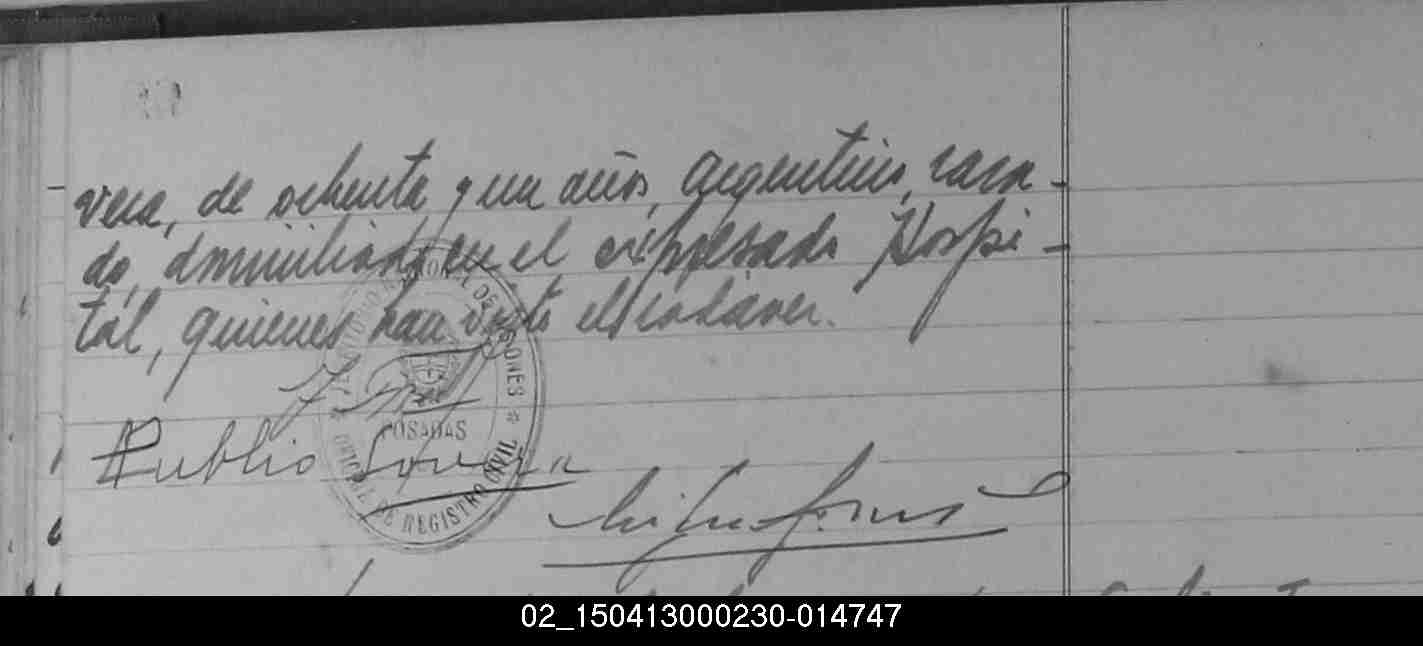 vera, de ochenta y un años, argentino, casa-
do, domiciliado en el expresado Hospi-
tal, quienes han visto el cadáver.
TERRITORIO NACIONAL DE MISIONES
POSADAS
OFICIAL DE REGISTRO CIVIL
Publio
02_150413000230-014747